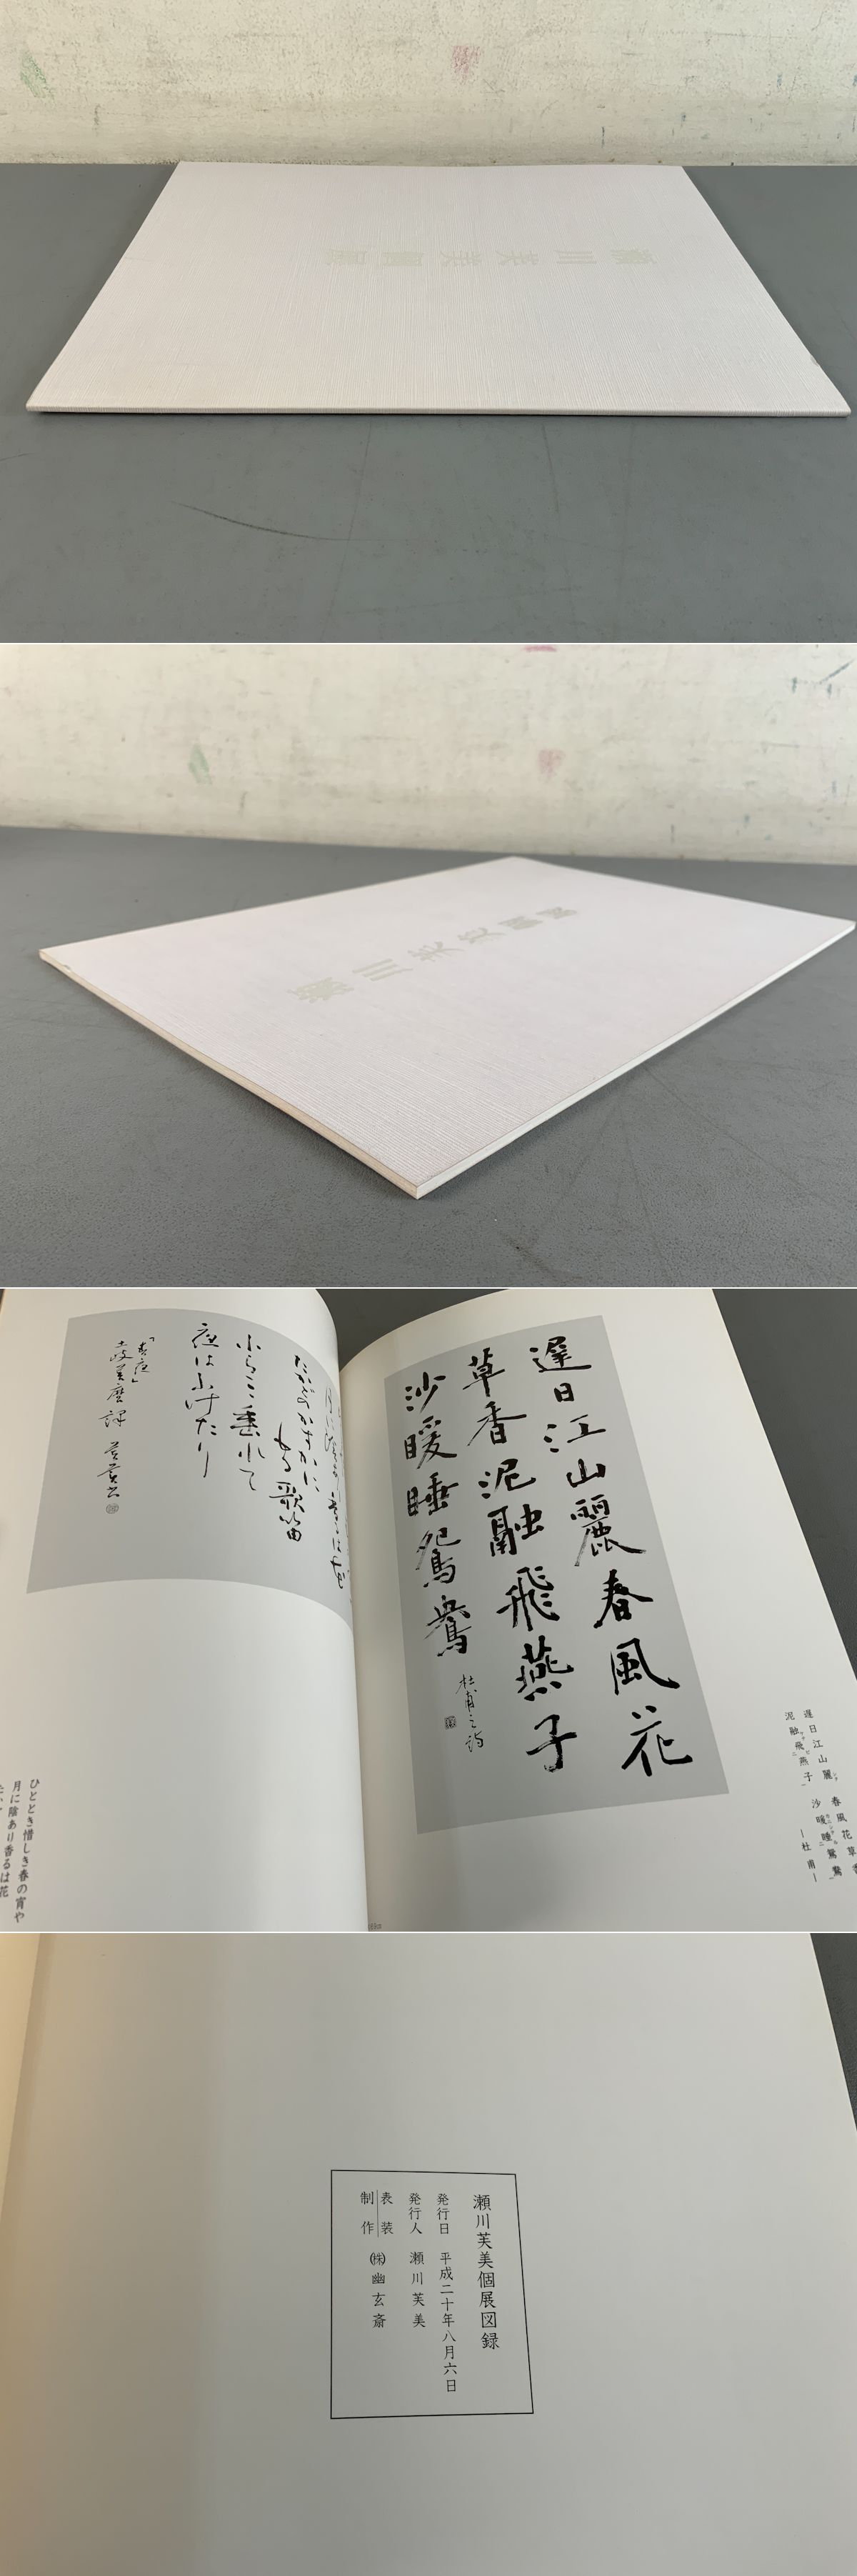 瀬川芙美個展
瀬川芙美個展
遅日江山麗春風花
草香泥融飛燕子
沙暖睡鴛鴦
杜甫之詩
遅日江山麗 春風花草香
泥融飛燕子 沙暖睡鴛鴦
―杜甫―
たかどのかすかに
もる歌笛
ふらここ垂れて
夜はふけたり
「春夜」
土岐善麿訳
ひととき惜しき春の宵や
月に陰あり香るは花
瀬川芙美個展図録
発行日 平成二十年八月六日
発行人 瀬川芙美
表装
制作 ㈱幽玄斎